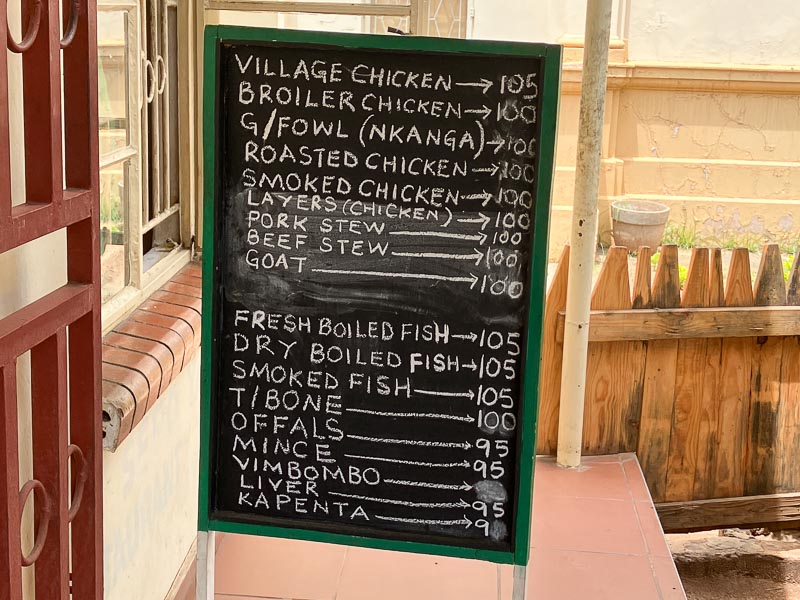 VILLAGE CHICKEN → 105
BROILER CHICKEN → 100
G/FOWL (NKANGA) → 100
ROASTED CHICKEN → 100
SMOKED CHICKEN → 100
LAYERS (CHICKEN) → 100
PORK STEW → 100
BEEF STEW → 100
GOAT → 100
FRESH BOILED FISH → 105
DRY BOILED FISH → 105
SMOKED FISH → 105
T/BONE → 100
OFFALS → 95
MINCE → 95
VIMBOMBO →
LIVER → 95
KAPENTA →